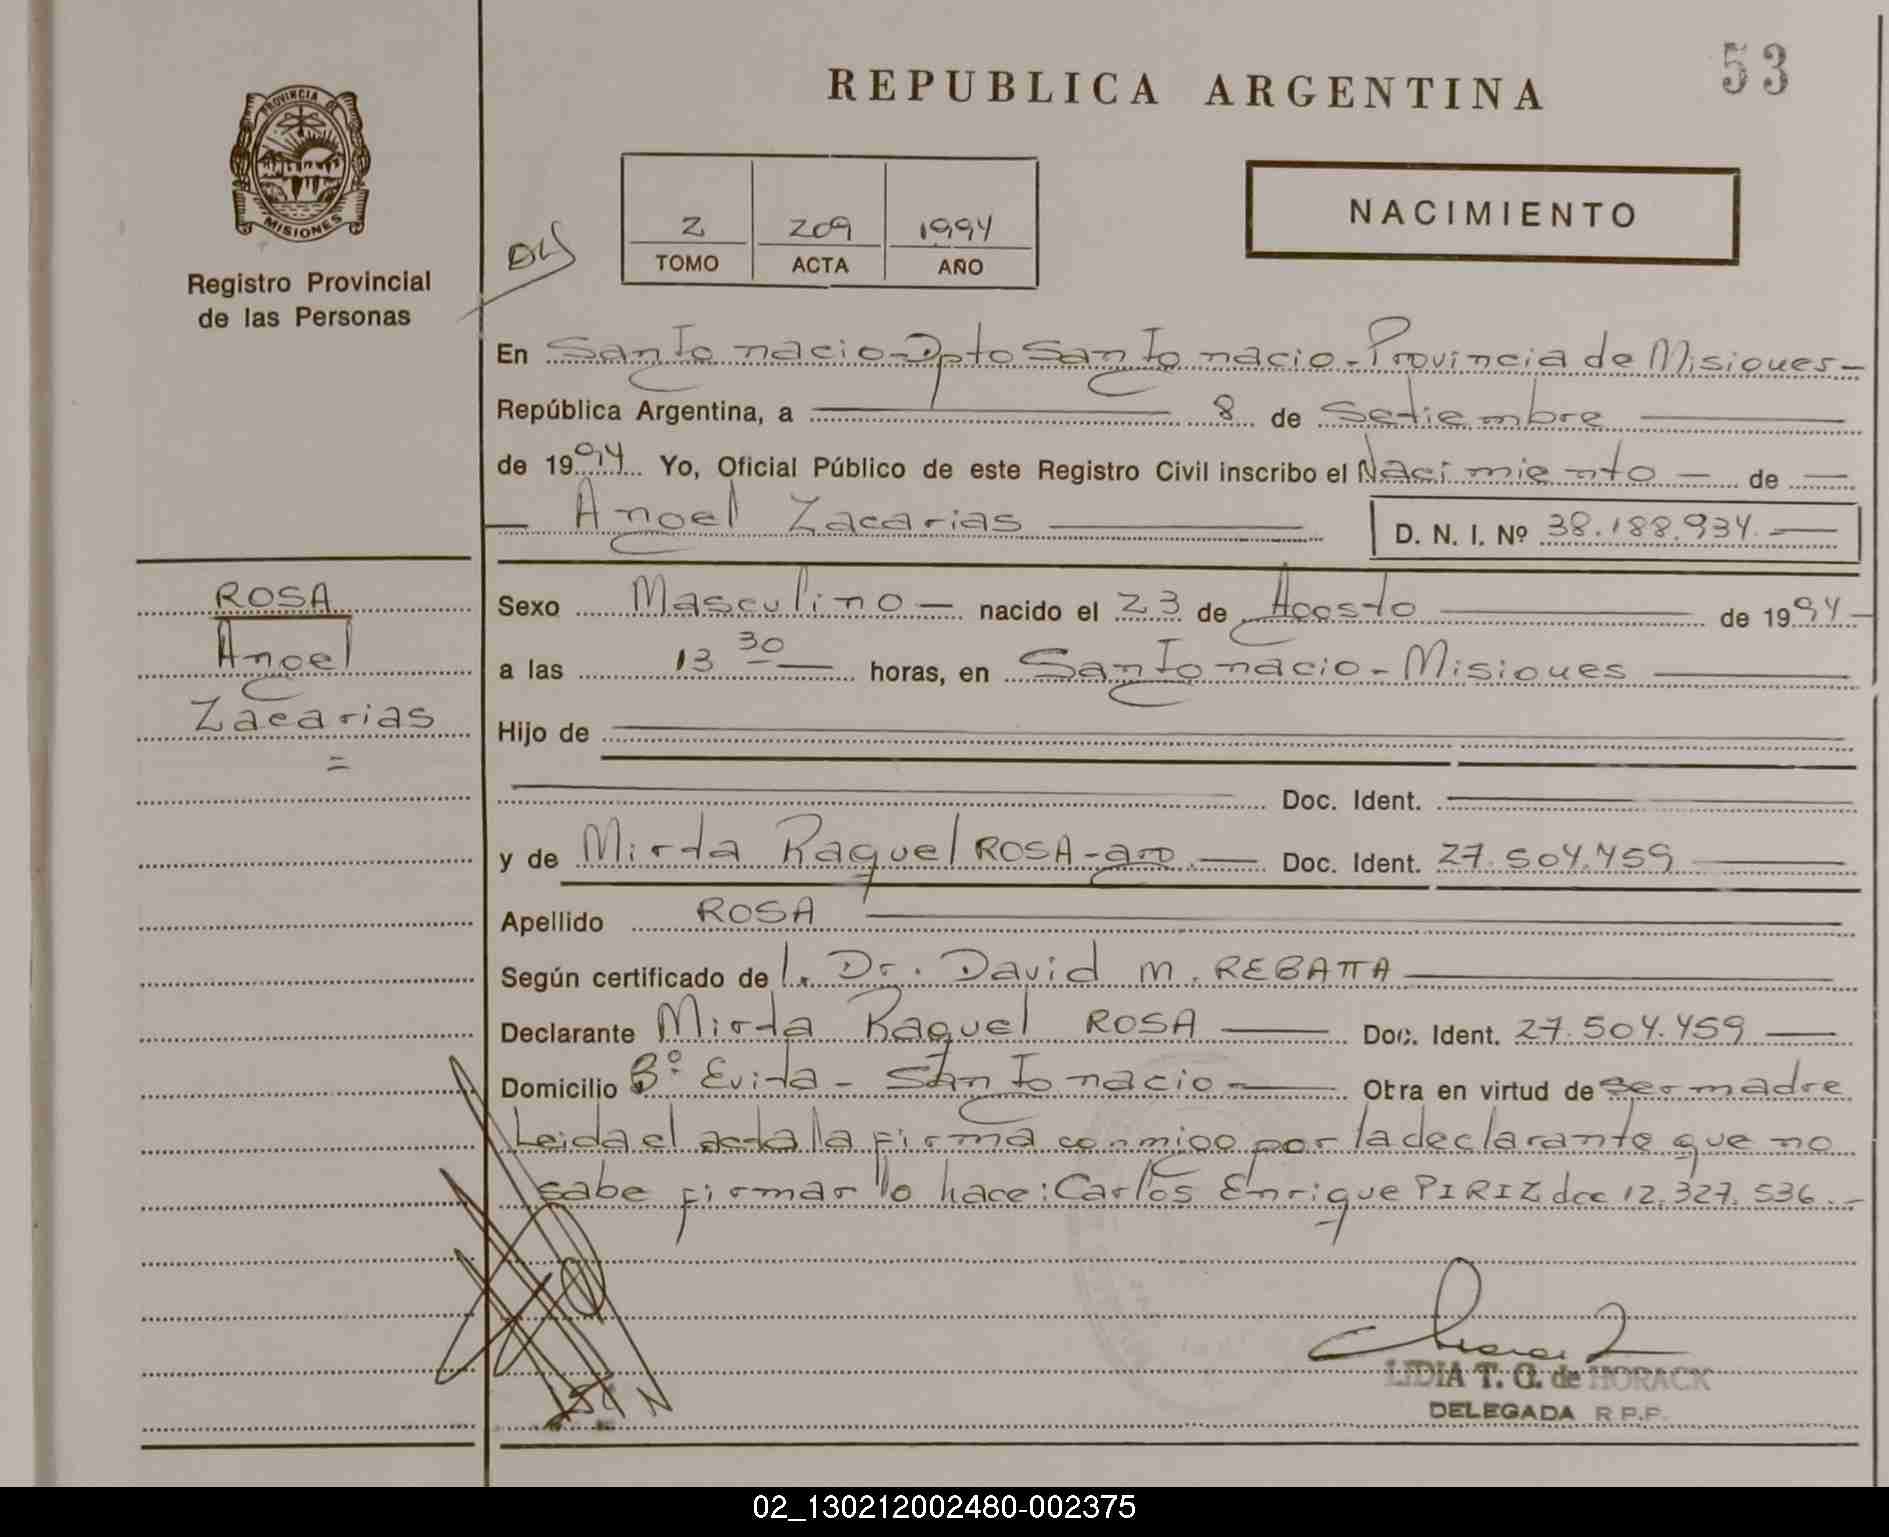 53
REPUBLICA ARGENTINA
PROVINCIA DE
MISIONES
Registro Provincial
de las Personas
2 209 1994
TOMO ACTA AÑO
NACIMIENTO
En San Ignacio - Dpto San Ignacio - Provincia de Misiones -
República Argentina, a 8 de Setiembre
de 1994 Yo, Oficial Público de este Registro Civil inscribo el Nacimiento - de -
Angel Zacarias D. N. I. Nº 38.188.934.
ROSA
Angel
Zacarias
=
Sexo Masculino - nacido el 23 de Agosto de 1994 -
a las 13 30 horas, en San Ignacio - Misiones
Hijo de
Doc. Ident.
y de Mirta Raquel ROSA - arg. Doc. Ident. 27.504.459
Apellido ROSA
Según certificado de l. Dr. David M. REBATTA
Declarante Mirta Raquel ROSA Doc. Ident. 27.504.459
Domicilio Bº Evita - San Ignacio - Obra en virtud de ser madre
Leida el acta la firma conmigo por la declarante que no
sabe firmar lo hace: Carlos Enrique PIRIZ doc 12.327.536.-
LIDIA T. G. de HORACK
DELEGADA R.P.P.
02_130212002480-002375